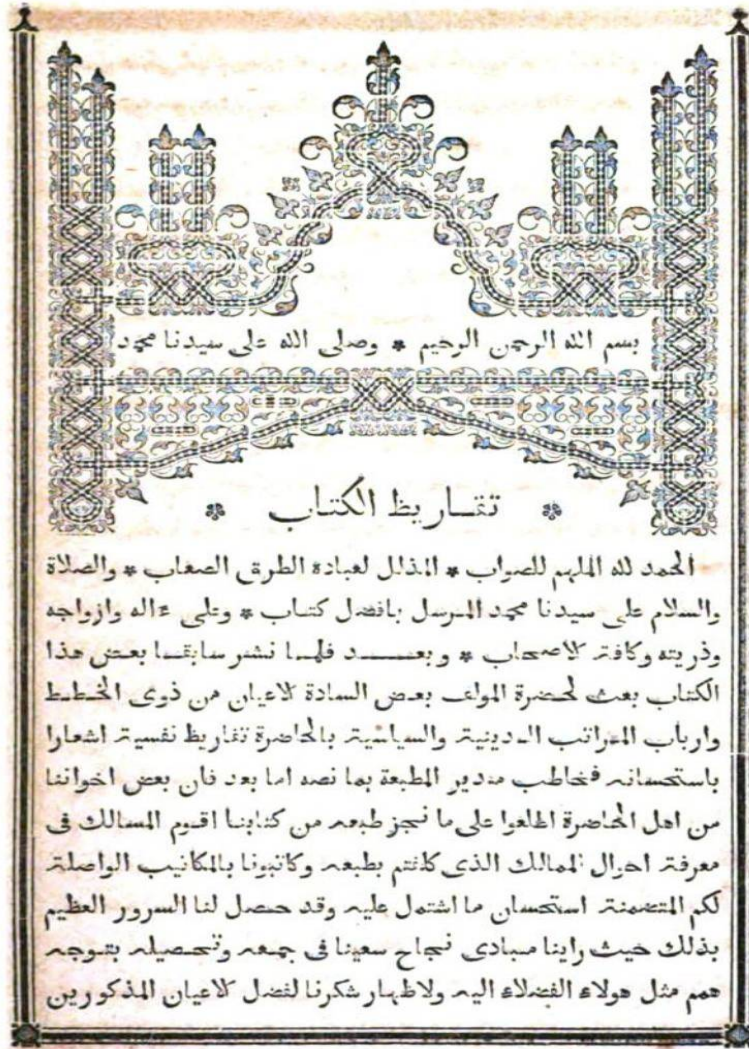 بسم الله الرحمن الرحيم * وصلى الله على سيدنا محمد
* تقاريظ الكتاب *
الحمد لله الملهم للصواب * المذلل لعباده الطرق الصعاب * والصلاة
والسلام على سيدنا محمد المرسل بافضل كتاب * وعلى ءاله وازواجه
وذريته وكافة الاصحاب * وبعد فلما نشر سابقا بعض هذا
الكتاب بعث لحضرة المولف بعض السادة الاعيان من ذوى الخطط
وارباب المراتب الدينية والسياسية بالحاضرة تقاريظ نفسية اشعارا
باستحسانه فخاطب مدير المطبعة بما نصه اما بعد فان بعض اخواننا
من اهل الحاضرة اطلعوا على ما نجز طبعه من كتابنا اقوم المسالك فى
معرفة احوال الممالك الذى كلفتم بطبعه وكاتبونا بالمكاتيب الواصلة
لكم المتضمنة استحسان ما اشتمل عليه وقد حصل لنا السرور العظيم
بذلك حيث راينا مبادى نجاح سعينا فى جمعه وتحصيله بتوجه
همم مثل هولاء الفضلاء اليه ولاظهار شكرنا لفضل الاعيان المذكورين